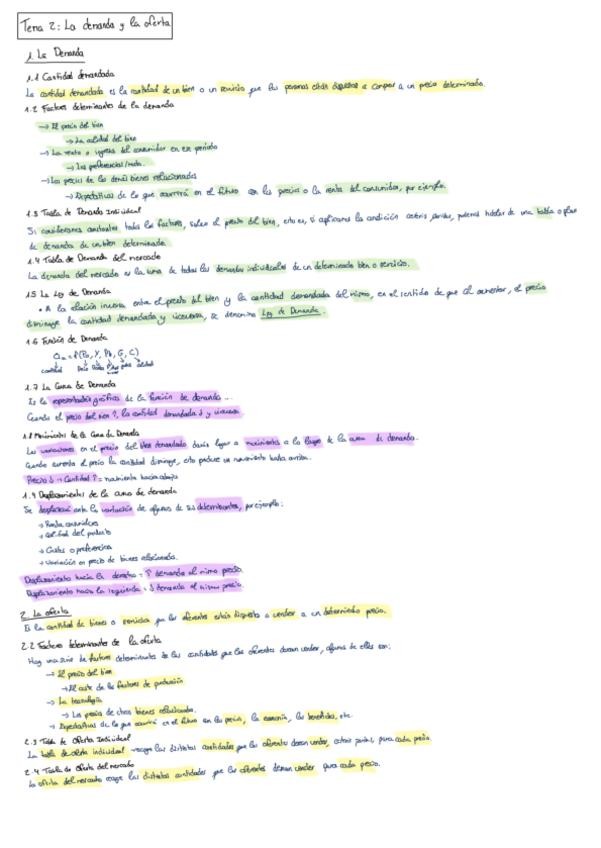 Tema 2: La demanda y la oferta
1. La Demanda
1.1 Cantidad demandada
La cantidad demandada es la cantidad de un bien o un servicio que las personas están dispuestas a comprar a un precio determinado.
1.2 Factores determinantes de la demanda
→ El precio del bien
→ La calidad del bien
→ La renta o ingresos del consumidor en ese periodo
→ Las preferencias/
→ Los precios de los demás bienes relacionados
→ Expectativas de lo que ocurrirá en el futuro con los precios o la renta del consumidor, por ejemplo.
1.3 Tabla de Demanda Individual
Si consideramos constantes todos los factores, salvo el precio del bien, esto es, si aplicamos la condición ceteris paribus, podemos hablar de una tabla o plan
de demanda de un bien determinado
1.4 Tabla de Demanda del mercado
La demanda del mercado es la suma de todas las demandas individuales de un determinado bien o servicio.
1.5 La Ley de Demanda
• A la relación inversa entre el precio del bien y la cantidad demandada del mismo, en el sentido de que al aumentar, el precio
disminuye la cantidad demandada y viceversa, se denomina Ley de Demanda.
1.6 Función de Demanda
= f(Pa, Y, Pb, G, C)
cantidad Precio Renta calidad
1.7 La Curva de Demanda
Es la representación gráfica de la función de demanda ...
Cuando el precio del bien ↑, la cantidad demandada ↓ y viceversa.
1.8 Movimientos de la Curva de Demanda
Las variaciones en el precio del bien demandado darán lugar a movimientos a lo largo de la curva de demanda.
Cuando aumenta el precio la cantidad disminuye, esto produce un movimiento hacia arriba.
Precio ↓ → Cantidad ↑ = movimiento hacia abajo
1.9 Desplazamientos de la curva de demanda
Se desplazará ante la variación de algunos de sus determinantes, por ejemplo:
→ Renta consumidores
→ Calidad del producto
→ Gustos o preferencias
→ Variación en precio de bienes relacionados.
Desplazamiento hacia la derecha = ↑ demanda al mismo precio
Desplazamiento hacia la izquierda = ↓ demanda al mismo precio.
2. La oferta
Es la cantidad de bienes o servicios que los oferentes están dispuestos a vender a un determinado precio.
2.2 Factores determinantes de la oferta
Hay una serie de factores determinantes de las cantidades que los oferentes desean vender, algunos de ellos son:
→ El precio del bien
→ El coste de los factores de producción
→ La tecnología
→ Los precios de otros bienes relacionados.
→ Expectativas de lo que ocurrirá en el futuro con los precios, la economía, los beneficios, etc.
2.3 Tabla de Oferta Individual
La tabla de oferta individual recoge las distintas cantidades que los oferentes desean vender, ceteris paribus, para cada precio.
2.4 Tabla de Oferta del mercado
La oferta del mercado recoge las distintas cantidades que los oferentes desean vender para cada precio.